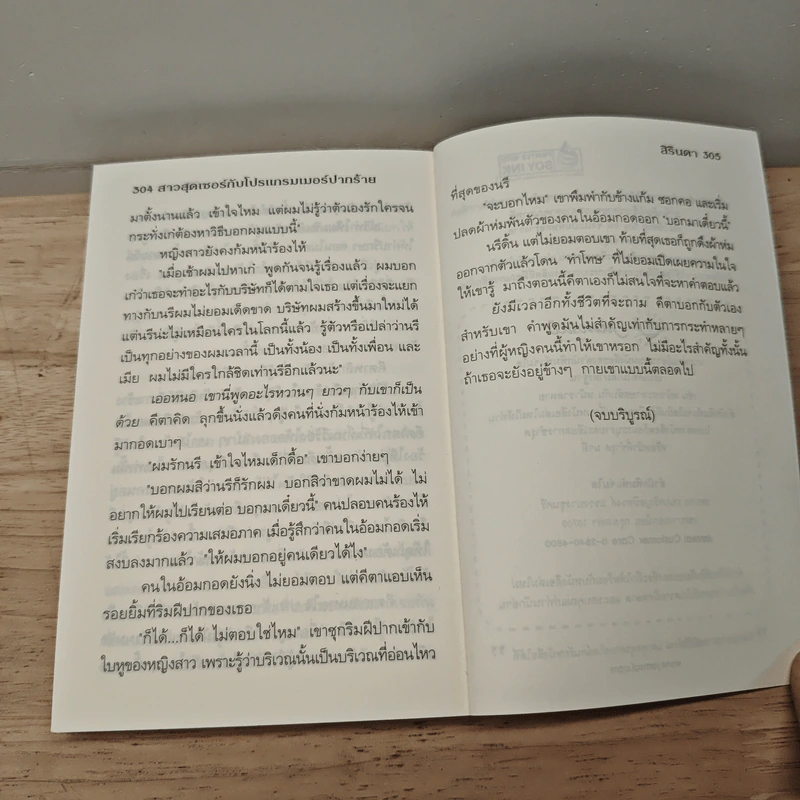 304 สาวสุดเซอร์กับโปรแกรมเมอร์ปากร้าย
มาตั้งนานแล้ว เข้าใจไหม แต่ผมไม่รู้ว่าตัวเองรักใครจน
กระทั่งเก๋ต้องหาวิธีบอกผมแบบนี้"
หญิงสาวยังคงก้มหน้าร้องไห้
"เมื่อเช้าผมไปหาเก๋ พูดกันจนรู้เรื่องแล้ว ผมบอก
เก๋ว่าเธอจะทำอะไรกับบริษัทก็ได้ตามใจเธอ แต่เรื่องจะแยก
ทางกับนรีผมไม่ยอมเด็ดขาด บริษัทผมสร้างขึ้นมาใหม่ได้
แต่นรีน่ะไม่เหมือนใครในโลกนี้แล้ว รู้ตัวหรือเปล่าว่านรี
เป็นทุกอย่างของผมเวลานี้ เป็นทั้งน้อง เป็นทั้งเพื่อน และ
เมีย ผมไม่มีใครใกล้ชิดเท่านรีอีกแล้วนะ"
เออหนอ เขานี่พูดอะไรหวานๆ ยาวๆ กับเขาก็เป็น
ด้วย คีตาคิด ลุกขึ้นนั่งแล้วดึงคนที่นั่งก้มหน้าร้องไห้เข้า
มากอดเบาๆ
"ผมรักนรี เข้าใจไหมเด็กดื้อ" เขาบอกง่ายๆ
"บอกผมสิว่านรีก็รักผม บอกสิว่าขาดผมไม่ได้ ไม่
อยากให้ผมไปเรียนต่อ บอกมาเดี๋ยวนี้" คนปลอบคนร้องไห้
เริ่มเรียกร้องความเสมอภาค เมื่อรู้สึกว่าคนในอ้อมกอดเริ่ม
สงบลงมากแล้ว "ให้ผมบอกอยู่คนเดียวได้ไง"
คนในอ้อมกอดยังนิ่ง ไม่ยอมตอบ แต่คีตาแอบเห็น
รอยยิ้มที่ริมฝีปากของเธอ
"ก็ได้...ก็ได้ ไม่ตอบใช่ไหม" เขาซุกริมฝีปากเข้ากับ
ใบหูของหญิงสาว เพราะรู้ว่าบริเวณนั้นเป็นบริเวณที่อ่อนไหว
สิรินดา 305
ที่สุดของนรี
"จะบอกไหม" เขาพึมพำกับข้างแก้ม ซอกคอ และเริ่ม
ปลดผ้าห่มพันตัวของคนในอ้อมกอดออก "บอกมาเดี๋ยวนี้"
นรีดิ้น แต่ไม่ยอมตอบเขา ท้ายที่สุดเธอก็ถูกดึงผ้าห่ม
ออกจากตัวแล้วโดน 'ทำโทษ' ที่ไม่ยอมเปิดเผยความในใจ
ให้เขารู้ มาถึงตอนนี้คีตาเองก็ไม่สนใจที่จะหาคำตอบแล้ว
ยังมีเวลาอีกทั้งชีวิตที่จะถาม คีตาบอกกับตัวเอง
สำหรับเขา คำพูดมันไม่สำคัญเท่ากับการกระทำหลายๆ
อย่างที่ผู้หญิงคนนี้ทำให้เขาหรอก ไม่มีอะไรสำคัญทั้งนั้น
ถ้าเธอจะยังอยู่ข้างๆ กายเขาแบบนี้ตลอดไป
(จบบริบูรณ์)